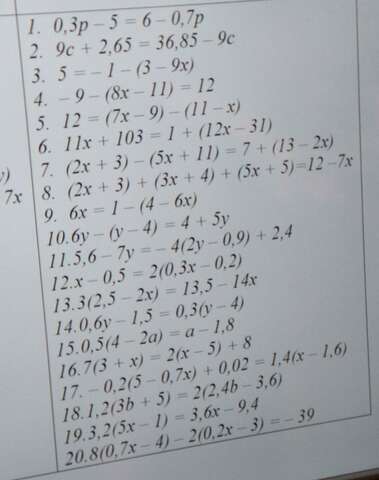 1. 0,3p – 5 = 6 – 0,7p
2. 9c + 2,65 = 36,85 – 9c
3. 5 = – 1 – (3 – 9x)
4. – 9 – (8x – 11) = 12
5. 12 = (7x – 9) – (11 – x)
6. 11x + 103 = 1 + (12x – 31)
7. (2x + 3) – (5x + 11) = 7 + (13 – 2x)
y)
8. (2x + 3) + (3x + 4) + (5x + 5)=12 –7x
7x
9. 6x = 1 – (4 – 6x)
10.6y – (y – 4) = 4 + 5y
11.5,6 – 7y = – 4(2y – 0,9) + 2,4
12.x – 0,5 = 2(0,3x – 0,2)
13.3(2,5 – 2x) = 13,5 – 14x
14.0,6y – 1,5 = 0,3(y – 4)
15.0,5(4 – 2a) = a – 1,8
16.7(3 + x) = 2(x – 5) + 8
17. – 0,2(5 – 0,7x) + 0,02 = 1,4(x – 1,6)
18.1,2(3b + 5) = 2(2,4b – 3,6)
19.3,2(5x – 1) = 3,6x – 9,4
20.8(0,7x – 4) – 2(0,2x – 3) = – 39